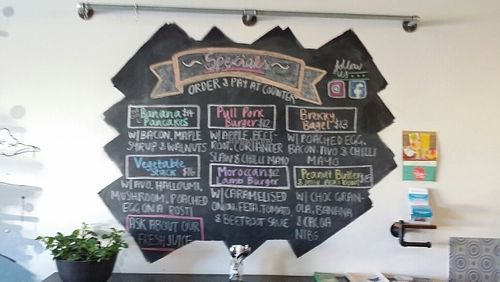 Specials
ORDER & PAY AT COUNTER
follow us
Banana $14
Pancakes
W/ BACON, MAPLE
SYRUP & WALNUTS
Pull Pork
Burger $12
W/ APPLE, BEET-
ROOT, CORIANDER
SLAW & CHILLI MAYO
Brekky
Bagel $13
W/ POACHED EGG,
BACON, AVO & CHILLI
MAYO
Vegetable
Stack $16
W/ AVO, HALLOUMI,
MUSHROOM, POACHED
EGG ON A ROSTI
Moroccan $12
Lamb Burger
W/ CARAMELISED
ONION, FETA, TOMATO
& BEETROOT SALSE
Peanut Butter
W/ CHOC GRAN-
OLA, BANANA
& CACAO
NIBS
ASK ABOUT OUR
FRESH JUICE